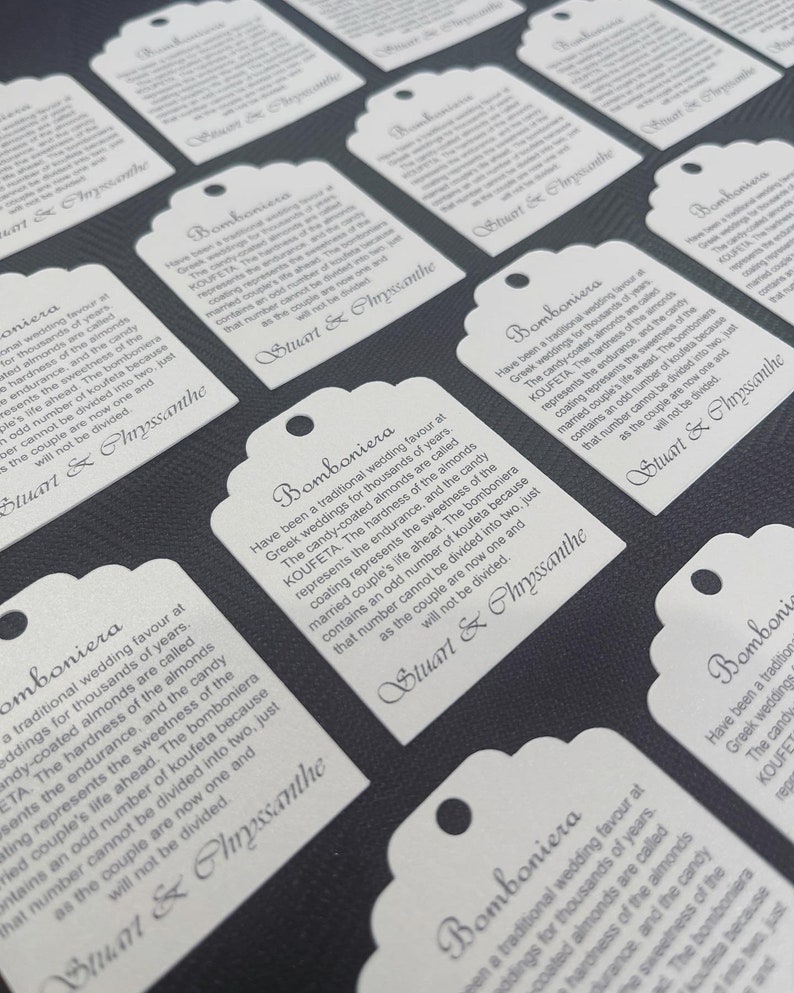 Bomboniera
Have been a traditional wedding favour at
Greek weddings for thousands of years.
The candy-coated almonds are called
KOUFETA. The hardness of the almonds
represents the endurance, and the candy
coating represents the sweetness of the
married couple's life ahead. The bomboniera
contains an odd number of koufeta because
that number cannot be divided into two, just
as the couple are now one and
will not be divided.
Stuart & Chryssanthe